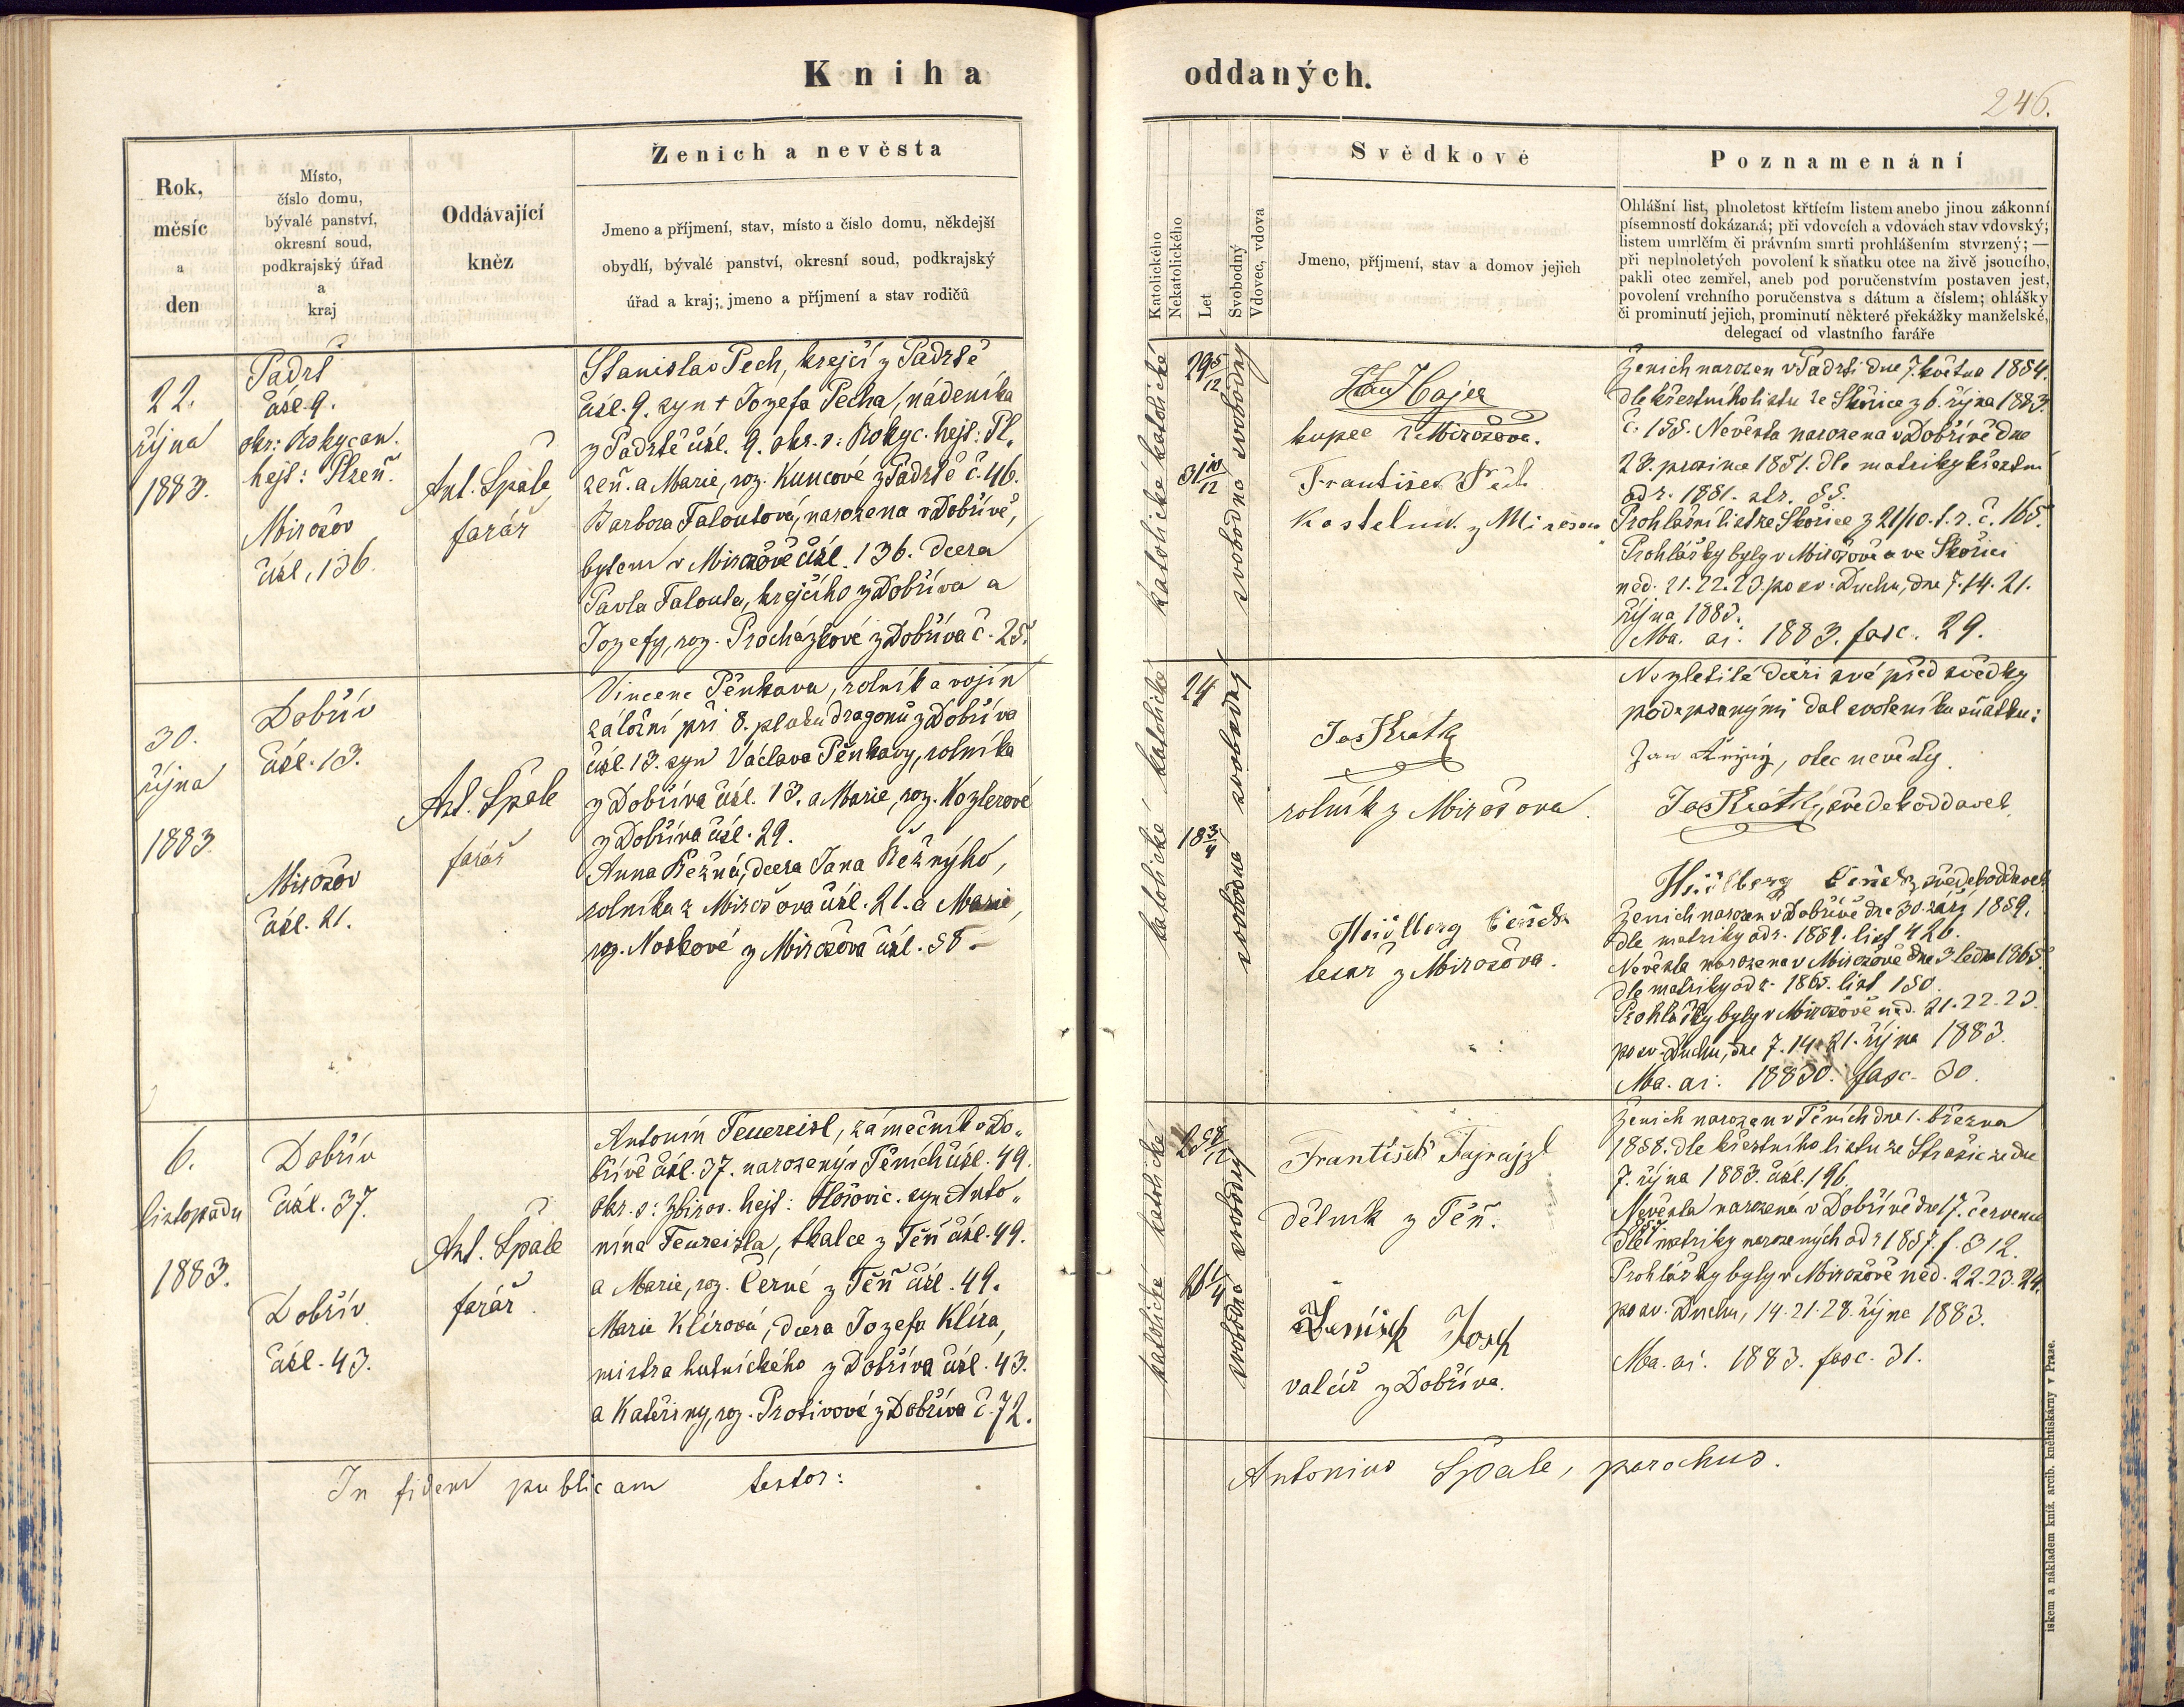 Kniha oddaných.
246.
Rok,
měsíc
a
den
Místo,
číslo domu,
bývalé panství,
okresní soud,
podkrajský úřad
a
kraj
Oddávající
kněz
Ženich a nevěsta
Jmeno a příjmení, stav, místo a číslo domu, někdejší
obydlí, bývalé panství, okresní soud, podkrajský
úřad a kraj; jmeno a příjmení a stav rodičů
Katolického
Nekatolického
Let
Svobodný
Vdovec, vdova
Svědkové
Jmeno, příjmení, stav a domov jejich
Poznamenání
Ohlášní list, plnoletost křtícím listem anebo jinou zákonní
písemností dokázaná; při vdovcích a vdovách stav vdovský;
listem umrlčím či právním smrti prohlášením stvrzený; —
při neplnoletých povolení k sňatku otce na živě jsoucího,
pakli otec zemřel, aneb pod poručenstvím postaven jest,
povolení vrchního poručenstva s dátum a číslem; ohlášky
či prominutí jejich, prominutí některé překážky manželské,
delegací od vlastního faráře
22.
října
1883.
Padrť
čísl. 9.
okr: Rokycan.
hejt: Plzeň.
Mirošov
čísl. 136.
Ant. Špale,
farář
Stanislav Pech, krejčí z Padrtě
čísl. 9. syn † Jozefa Pecha, nádeníka
z Padrtě čísl. 9. okr. s: Rokyc. hejt: Pl„
zeň. a Marie, roz. Kuncové z Padrtě č. 46.
Barbora Faloutová, narozena v Dobřívě,
bytem v Mirošově čísl. 136. dcera
Pavla Falouta, krejčího z Dobříva a
Jozefy, roz. Procházkové z Dobříva č. 25.
katolické katolické
29 5/12
31 10/12
svobodná svobodný
Jan Hajek
kupec z Mirošova.
František Pech
Kostelník z Mirošova
Ženich narozen v Padrti dne 7. května 1854.
dle křestního listu ze Skořice z 6. října 1883.
č. 155. Nevěsta narozena v Dobřívě dne
28. prosince 1851. dle matriky křestní
od r. 1851. str. 55.
Prohlašní list ze Skořice z 21/10. t. r. č. 165.
Prohlášky byly v Mirošově a ve Skořici
ned. 21. 22. 23. po sv. Duchu, dne 7. 14. 21.
října 1883.
Ma. ai. 1883. fasc. 29.
30.
října
1883.
Dobřív
čísl. 13.
Mirošov
čísl. 21.
Ant. Špale
farář
Vincenc Pěnkava, rolník a vojín
záložní při 8. pluku dragonů z Dobříva
čísl. 13. syn Václava Pěnkavy, rolníka
z Dobříva čísl. 13. a Marie, roz. Kozlerové
z Dobříva čísl. 29.
Anna Režná, dcera Jana Režnýho,
rolníka z Mirošova čísl. 21. a Marie,
roz. Noskové z Mirošova čísl. 58.
katolické katolické
24
18 3/4
svobodná svobodný
Jos Krátký
rolník z Mirošova.
tesař z Mirošova.
Nezletilé dceři své před svědky
podepsanými dal svolení ku sňatku:
Jan Režný, otec nevěsty.
Jos Krátký, svědek oddavek
svědek oddavek
Ženich narozen v Dobřívě dne 30. září 1859.
dle matriky od r. 1859. list 426.
Nevěsta narozena v Mirošově dne 3 ledna 1865.
dle matriky od r. 1865. list 150.
Prohlášky byly v Mirošově ned. 21. 22. 23.
po sv. Duchu, dne 7. 14. 21. října 1883.
Ma. ai. 1883. fasc. 30.
6.
listopadu
1883.
Dobřív
čísl. 37.
Dobřív
čísl. 43.
Ant. Špale
farář.
Antonín Feuereisl, zámečník v Do„
břívě čísl. 37. narozený v Těních čísl. 49.
okr. s: Zbirov. hejt: Hořovic. syn Anto„
nína Feureisla, tkalce z Těň čísl. 49.
a Marie, roz. Černé z Těň čísl. 49.
Marie Klírová, dcera Jozefa Klíra,
mistra hutnického z Dobříva čísl. 43.
a Kateřiny, roz. Protivové z Dobříva č. 72.
katolické katolické
25 8/12
26 1/4
svobodná svobodný
František Fajrajzl
dělník z Těň.
Josef
valcíř z Dobříva.
Ženich narozen v Těních dne 1. března
1858. dle křestního listu ze Strašic ze dne
7. října 1883. čísl. 196.
Nevěsta narozená v Dobřívě dne 17. července
857.
dle matriky narozených od r 1857. f. 312.
Prohlášky byly v Mirošově ned. 22. 23. 24.
po sv. Duchu, 14. 21. 28. října 1883.
Ma. ai. 1883. fasc. 31.
In fidem publicam testor:
Antonius Špale, parochus.
iskem a nákladem kníž. arcib. knihtiskárny v Praze.